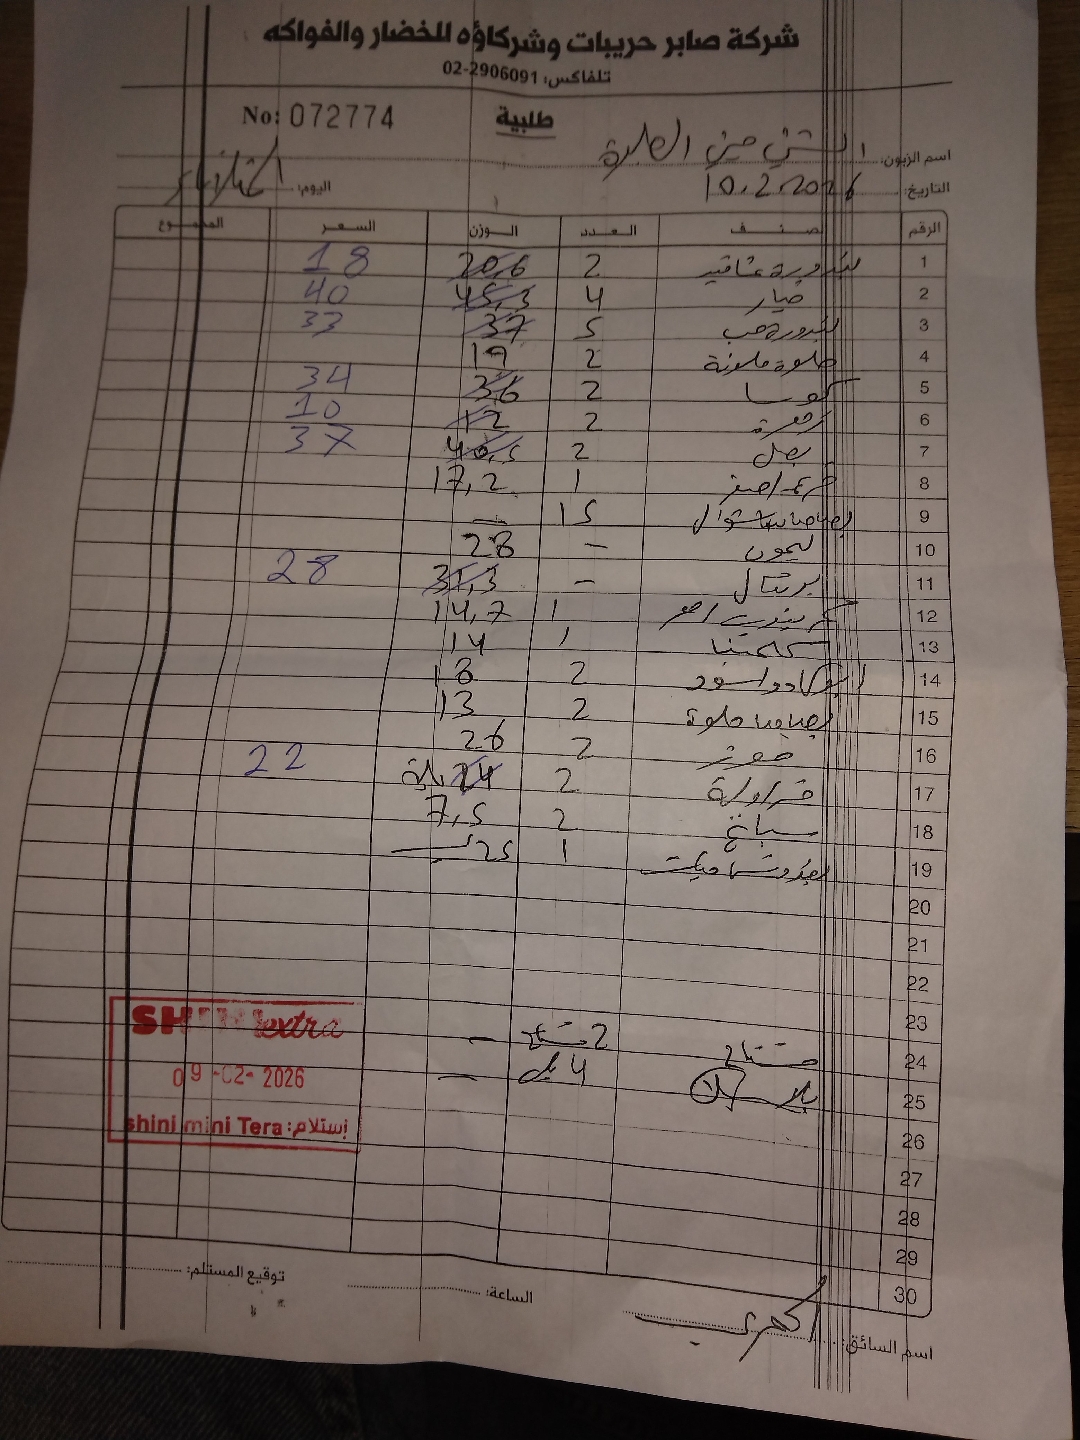 شركة صابر حريبات وشركاؤه للخضار والفواكه
تلفاكس: 02-2906091
No: 072774
طلبية
اسم الزبون:
التاريخ: 10.2.2026
اليوم: الثلاثاء
الرقم صنف العدد الوزن السعر المجموع
1 بندورة عناقيد 2 20,6 18
2 خيار 4 45,3 40
3 بندورة حب 5 37 33
4 حلوة ملونة 2 19
5 كوسا 2 36 34
6 زهرة 2 12 10
7 بصل 2 40,5 37
8 17,2 1
9 15 —
10 ليمون - 28
11 برتقال - 31,3 28
12 1 14,7
13 كلمنتينا 1 14
14 افوكادو اسود 2 18
15 بطاطا حلوة 2 13
16 موز 2 26
17 فراولة 2 24 22
18 سبانخ 2 7,5
19 1 25
20
21
22
23
24 2 —
25 4 —
26
27
28
29
30
SHINI extra
09-02-2026
shini mini Tera :إستلام
توقيع المستلم:
الساعة:
اسم السائق: